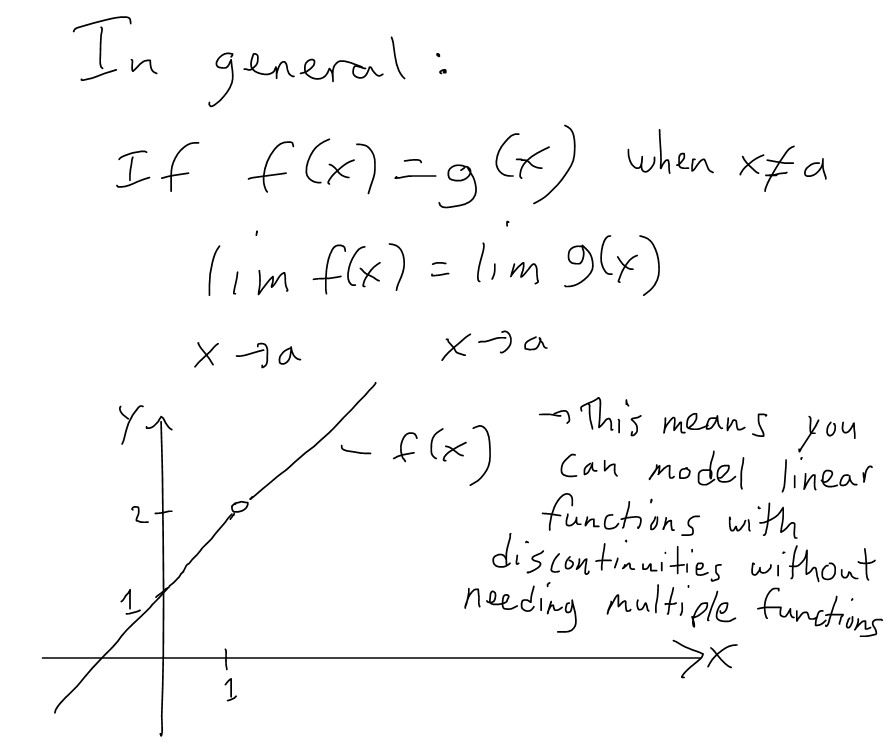 In general:
If f(x)=g(x) when x≠a
lim f(x) = lim g(x)
x→a x→a
Y
- f(x)
→This means you
can model linear
functions with
discontinuities without
needing multiple functions
2
1
X
1